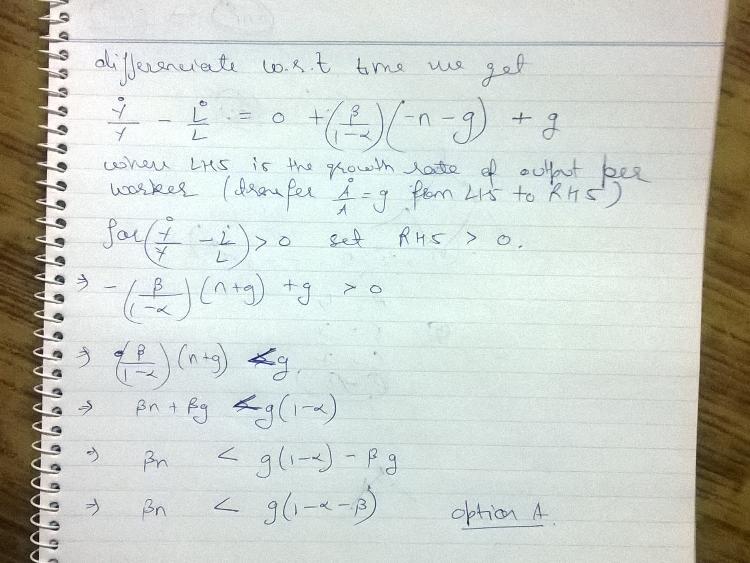 differenciate w.r.t time we get
Ẏ/Y - L̇/L = 0 + (β/1-α)(-n - g) + g
when LHS is the growth rate of output per
worker (transfer Ȧ/A = g from LHS to RHS)
for (Ẏ/Y - L̇/L) > 0 set RHS > 0.
⇒ -(β/1-α)(n+g) + g > 0
⇒ (β/1-α)(n+g) < g.
⇒ βn + βg < g(1-α)
⇒ βn < g(1-α) - βg
⇒ βn < g(1-α-β) option A.